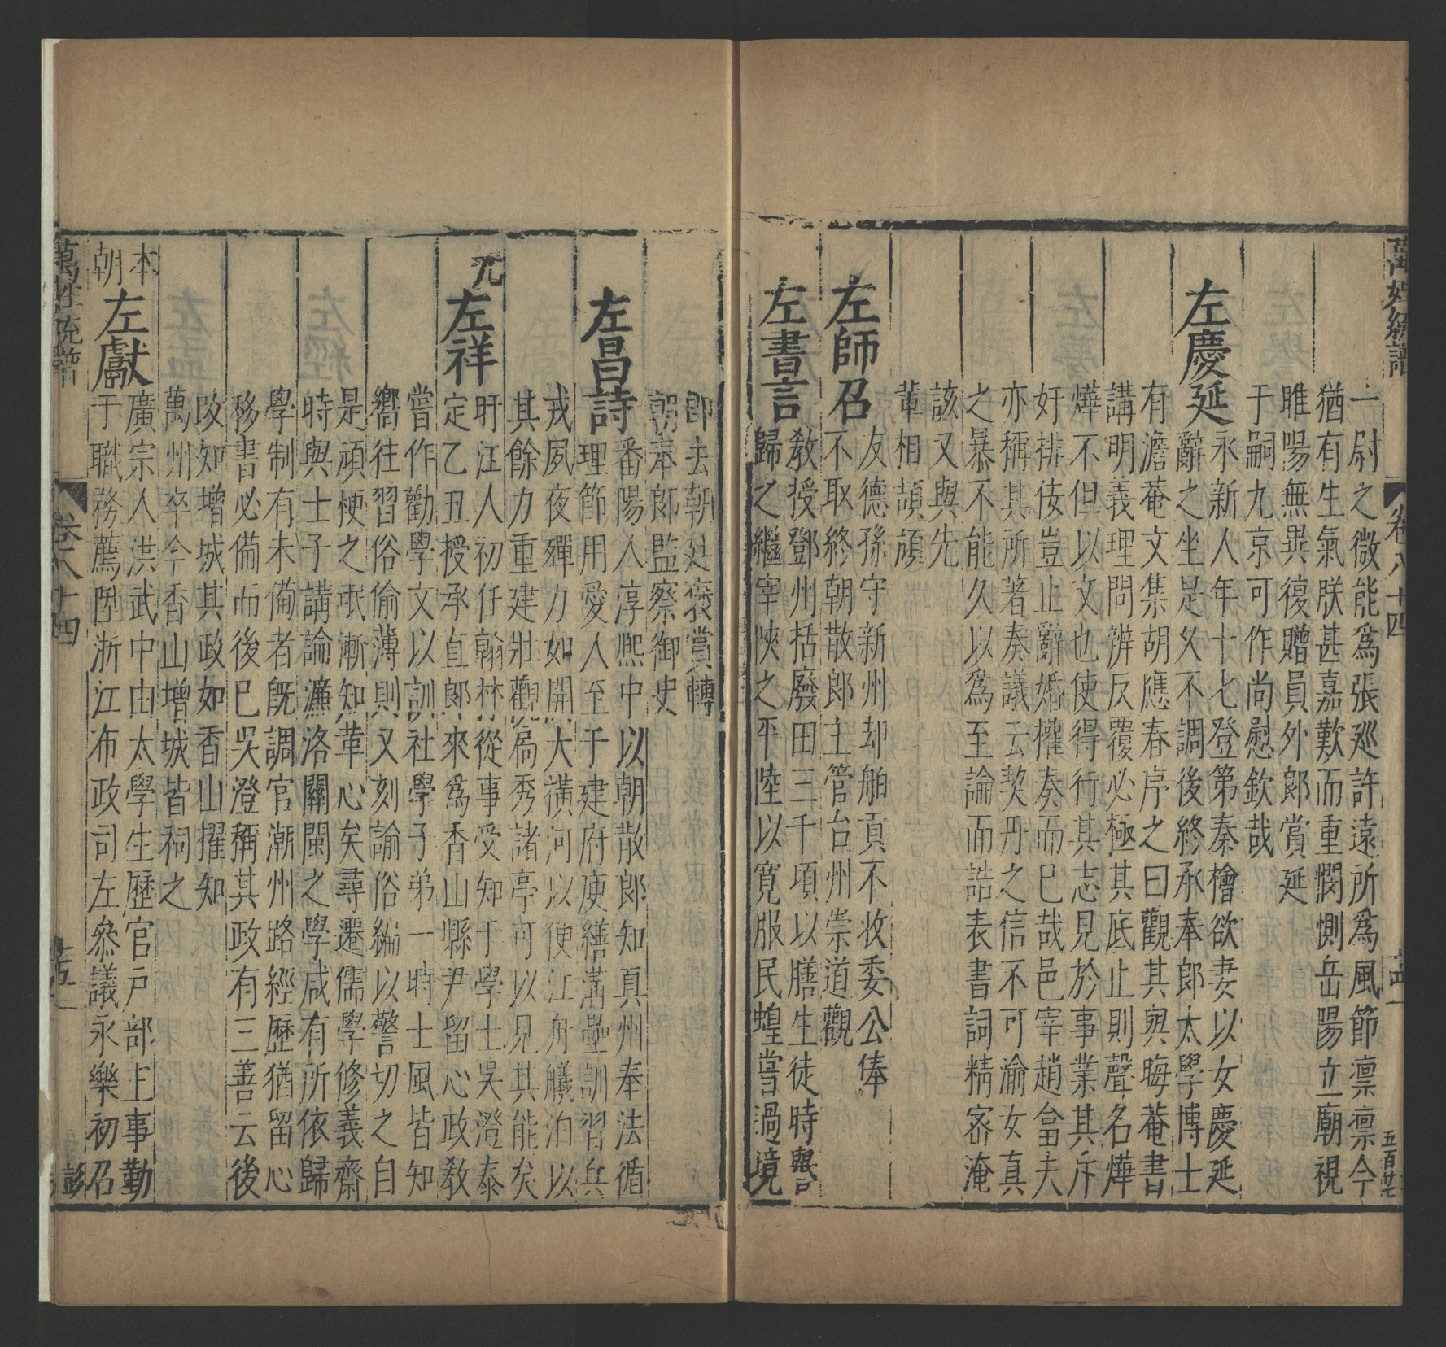 萬姓統譜
卷八十四
五百廿七
一尉之微能爲張巡許遠所爲風節凛凛今
猶有生氣朕甚嘉歎而重憫惻岳陽立廟視
睢陽無異復贈員外郎賞延
于嗣九京可作尚慰欽哉
左慶延
永新人年十七登第秦檜欲妻以女慶延
辭之坐是久不調後終承奉郎太學博士
有澹菴文集胡應春序之曰觀其與晦菴書
講明義理問辨反覆必極其底止則聲名燁
燁不但以文也使得行其志見於事業其斥
奸排佞豈止辭婚權奏而已哉邑宰趙畣夫
亦稱其所著奏議云契丹之信不可渝女真
之暴不能久以爲至論而誥表書詞精密淹
該又與先
輩相頡頏
左師召
友德孫守新州却舶貢不收委公俸
不取終朝散郎主管台州崇道觀
左書言
教授鄧州括廢田三千頃以膳生徒時譽
歸之繼宰陝之平陸以寬服民蝗嘗過境
即去朝廷褒賞轉
朝奉郎監察御史
左昌詩
番陽人淳熙中以朝散郎知真州奉法循
理節用愛人至于建府庾繕溝壘訓習兵
戎夙夜殫力如開大潢河以便江舟艤泊以
其餘力重建壯觀高秀諸亭可以見其能矣
元
左祥
盱江人初仕翰林從事受知于學士吳澄泰
定乙丑授承直郎來爲香山縣尹留心政教
嘗作勸學文以訓社學子弟一時士風皆知
嚮往習俗偷薄則又刻諭俗編以警切之自
是頑梗之氓漸知革心矣尋遷儒學修義齋
時與士子講論濂洛關閩之學咸有所依歸
學制有未備者旣調官潮州路經歷猶留心
移書必備而後已吳澄稱其政有三善云後
攺知增城其政如香山擢知
萬州卒今香山增城皆祠之
本朝
左獻
廣宗人洪武中由太學生歷官戸部主事勤
于職務薦陞浙江布政司左叅議永樂初召
萬姓統譜
卷八十四